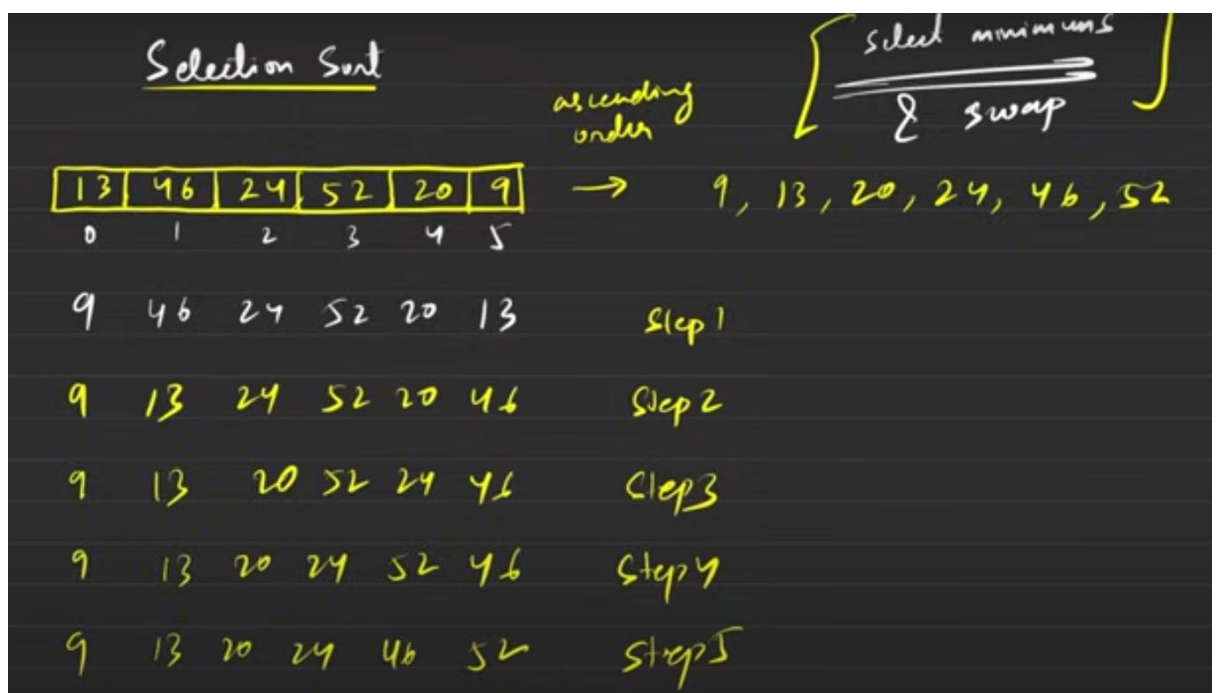 Selection Sort
select minimums
& swap
ascending
order
13 46 24 52 20 9 → 9, 13, 20, 24, 46, 52
0 1 2 3 4 5
9 46 24 52 20 13 Step 1
9 13 24 52 20 46 Step 2
9 13 20 52 24 46 Step 3
9 13 20 24 52 46 Step 4
9 13 20 24 46 52 Step 5